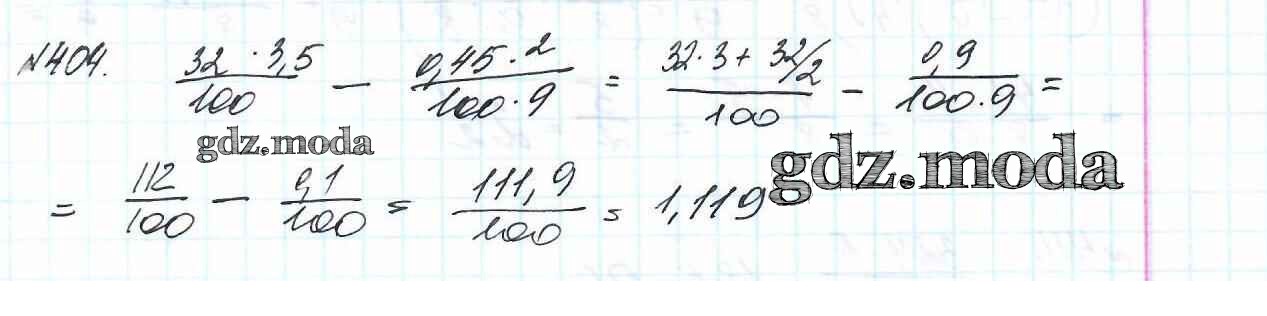 №404. 32·3,5/100 − 0,45·2/100·9 = 32·3+32/2/100 − 0,9/100·9 =
gdz.moda
gdz.moda
= 112/100 − 0,1/100 = 111,9/100 = 1,119